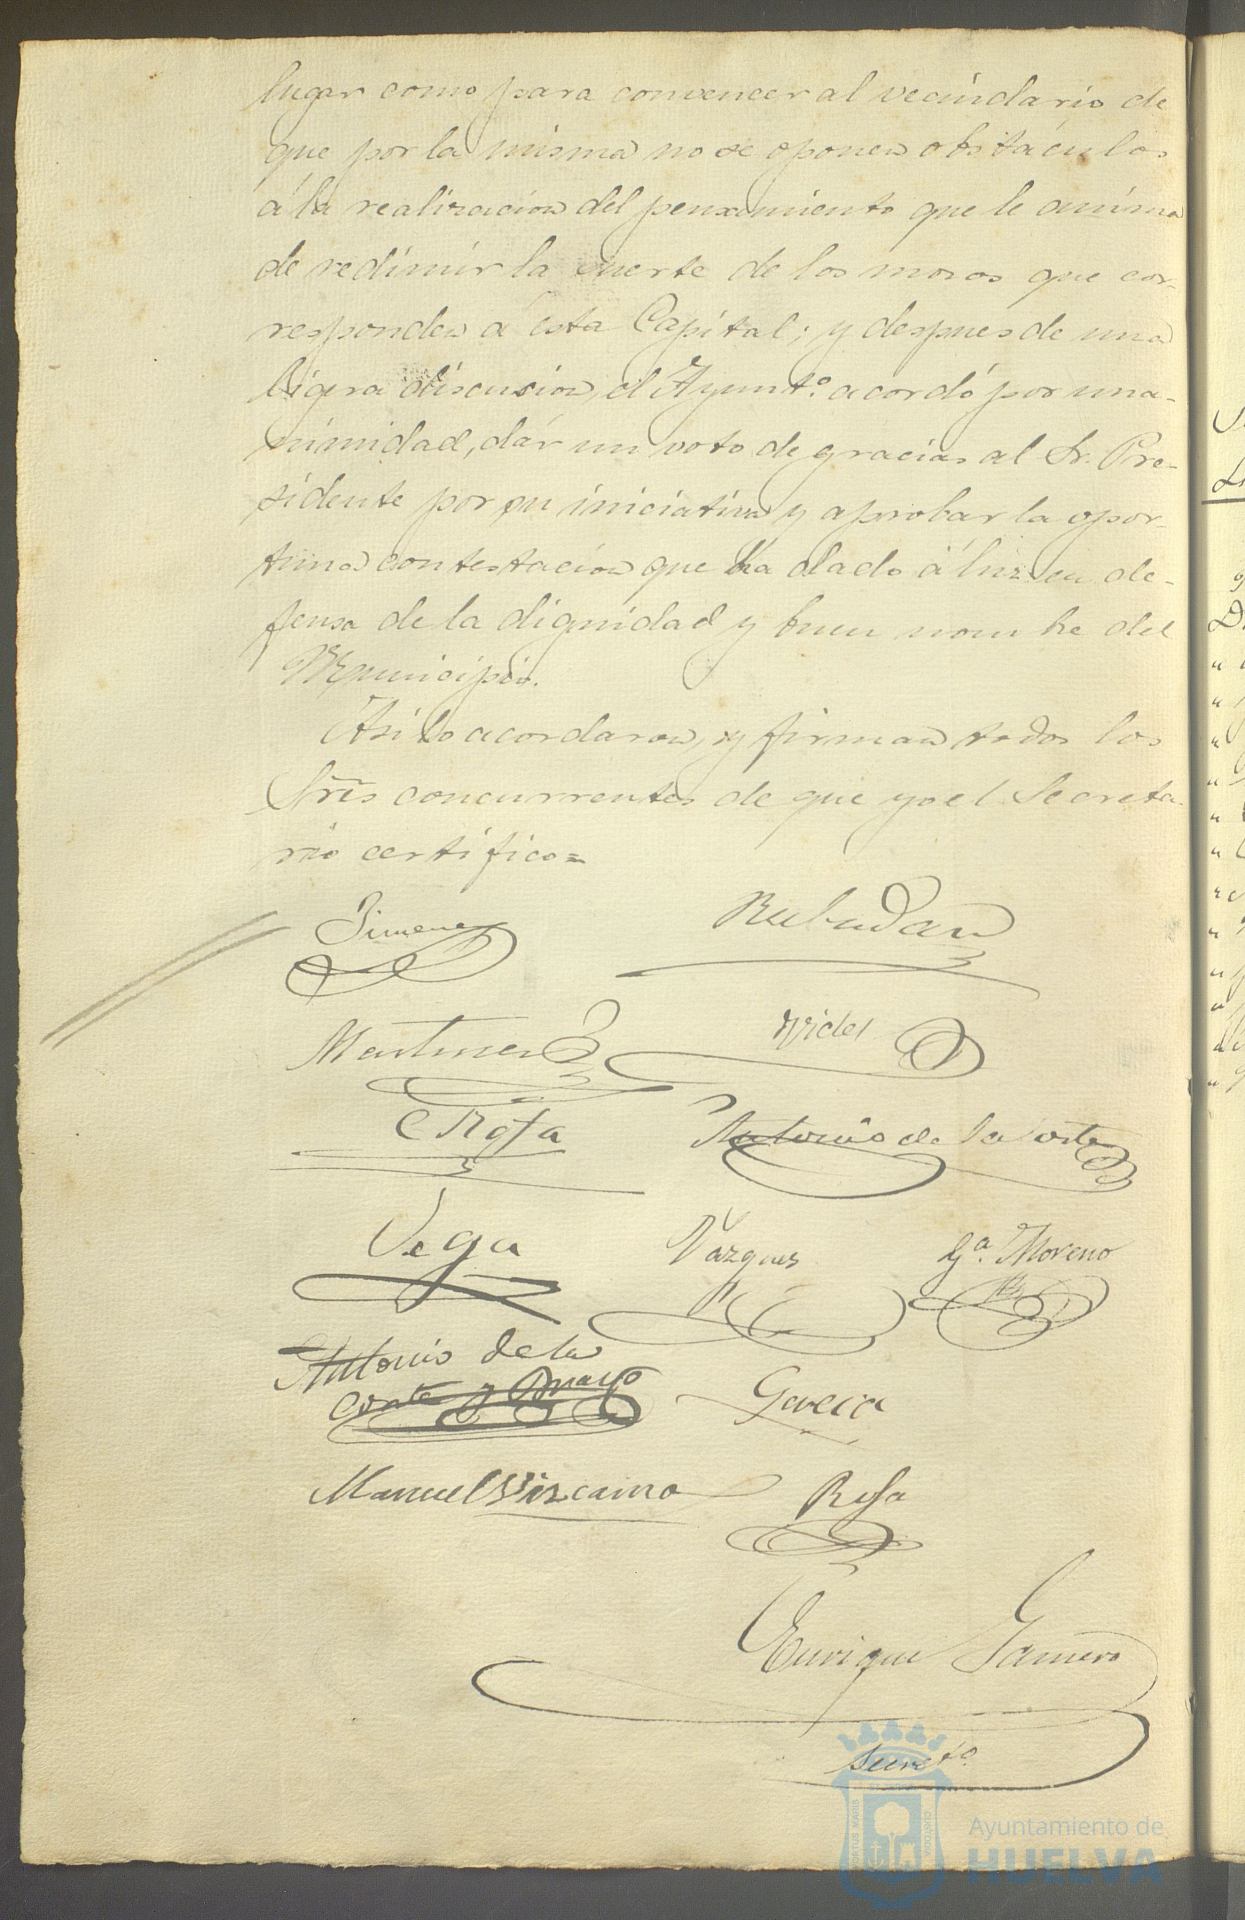 lugar como para convencer al vecindario de
que por la misma no se oponen obstáculos
á la realizacion del pensamiento que le anima
de redimir la suerte de los mozos que cor-
responden á esta Capital; y despues de una
ligera discusion, el Ayuntº. acordó por una-
nimidad, dár un voto de gracias al Sr. Pre-
sidente por su iniciativa y aprobar la opor-
tuna contestacion que ha dado á luz en de-
fensa de la dignidad y buen nombre del
Municipio.
Asi lo acordaron, y firman todos los
Sres concurrentes de que yo el Secreta-
rio certifico=
Jimenez
Rebudan
Martinez
Vides
Rofa
Antonio de la Corte
Vega
Vazquez
Gª. Moreno
Antonio de la
Corte y Bravo
Garcia
Manuel Vizcaino
Rofa
Enrique Gamero
Secretº.
PORTUS MARIS
CUSTODIA
Ayuntamiento de
HUELVA